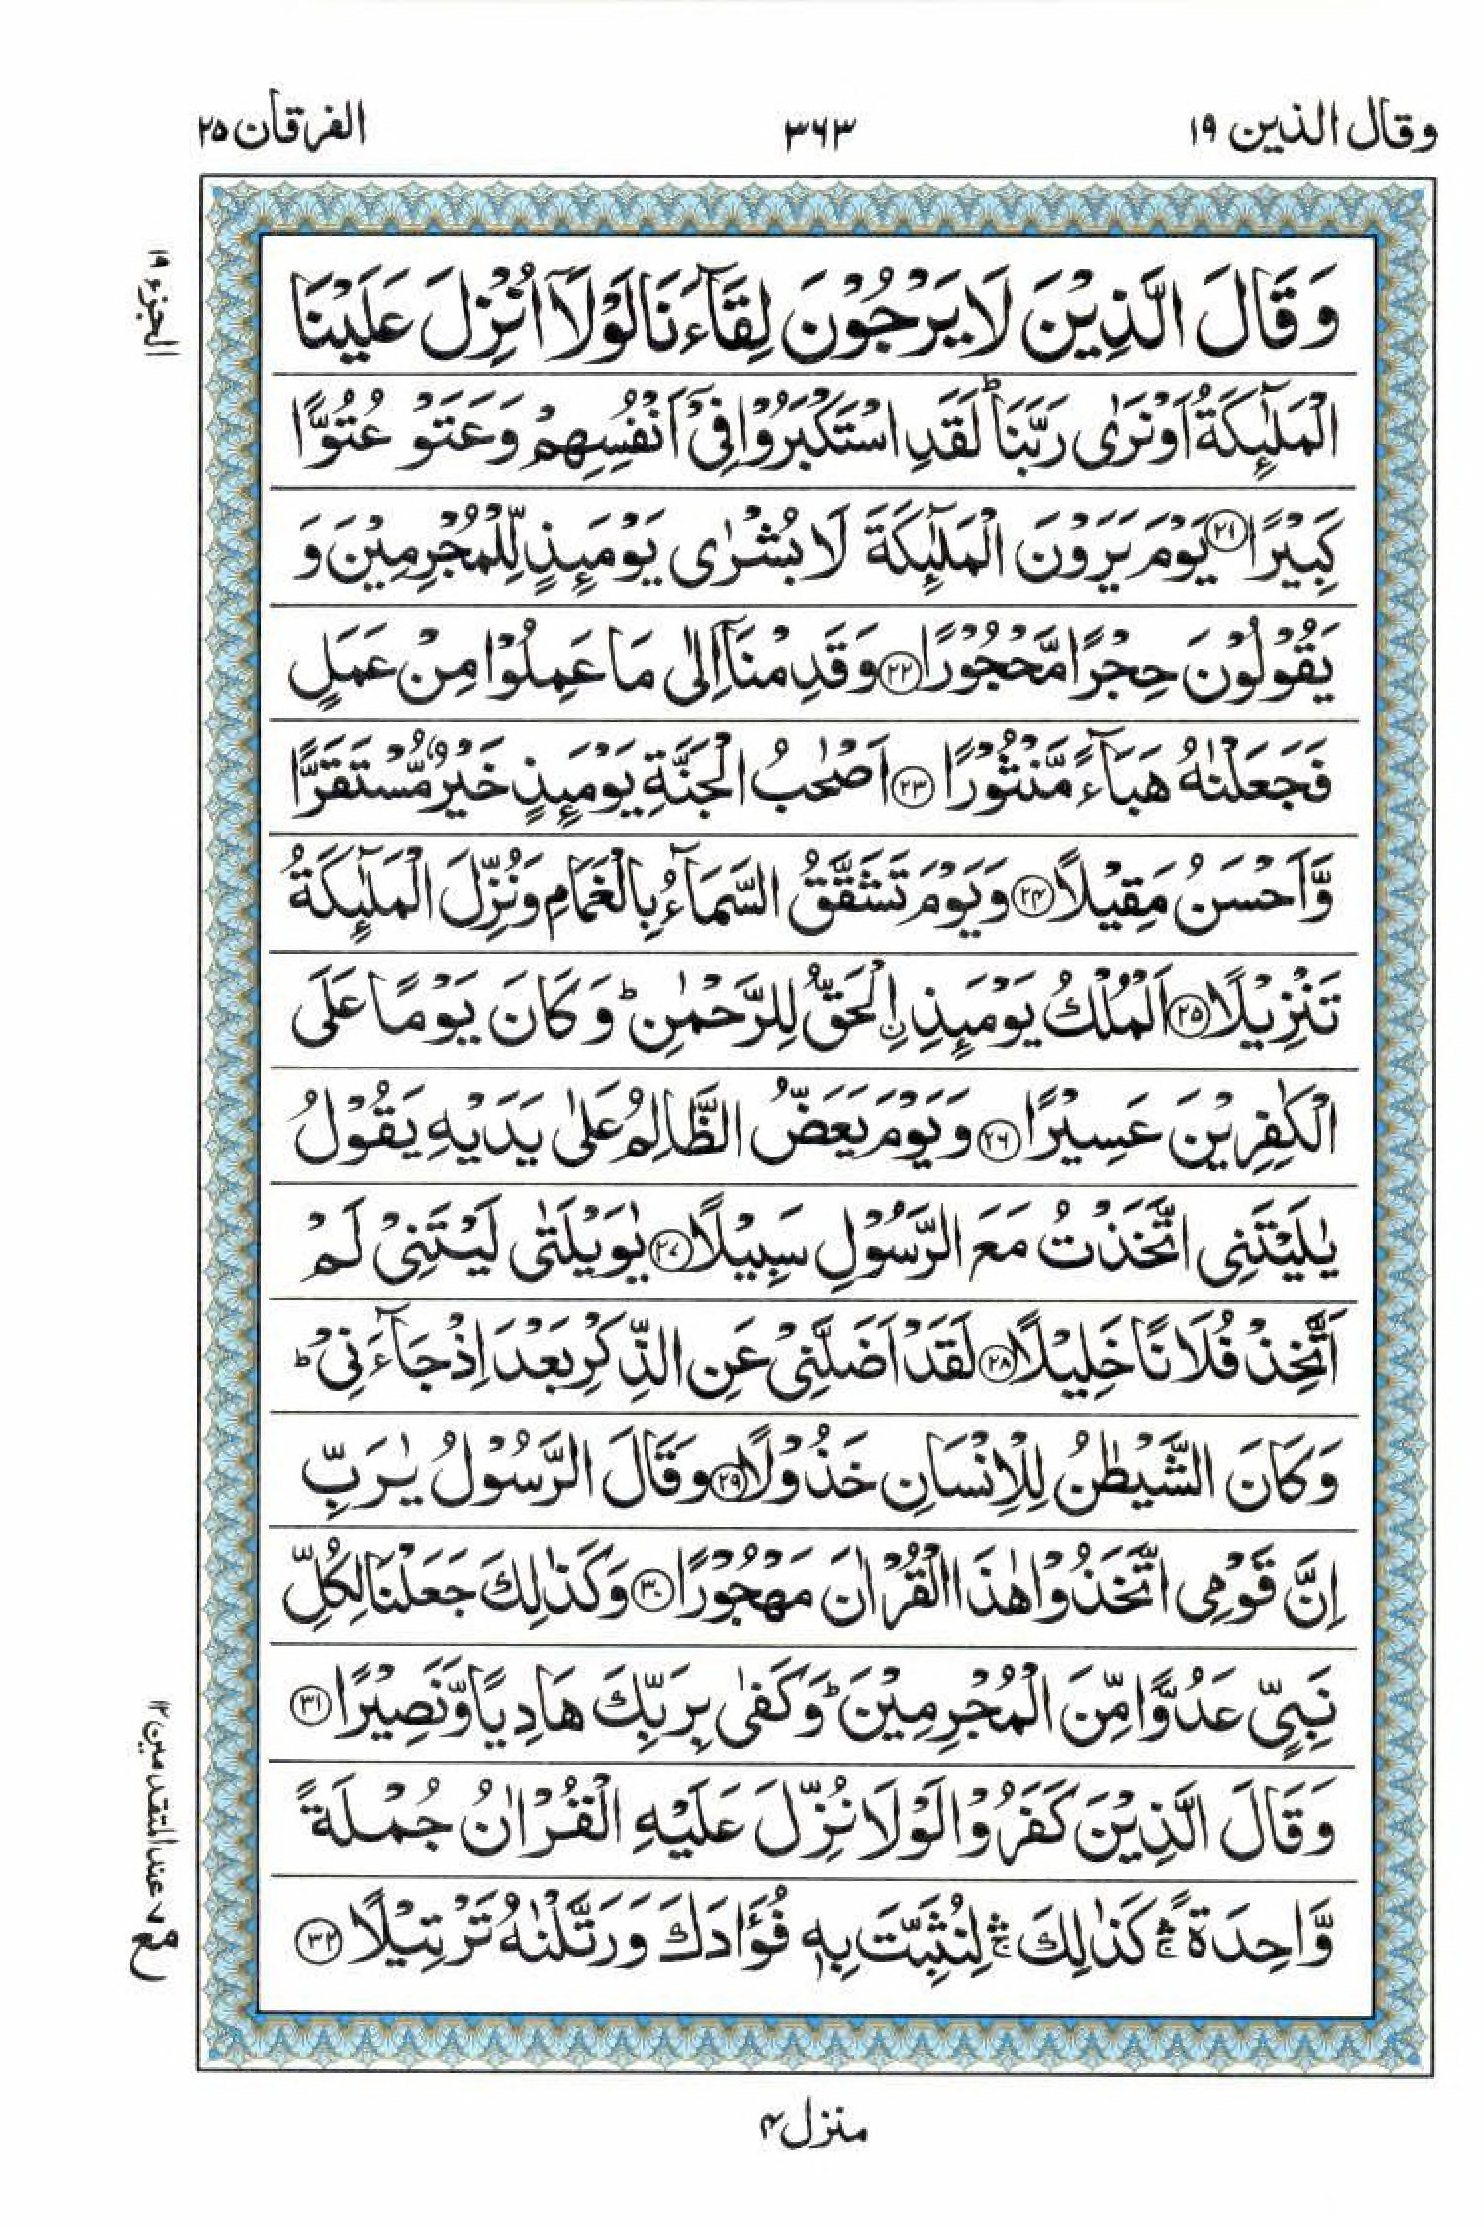 وقال الذين ١٩
٣٦٣
الفرقان ٢٥
الجزء ١٩
وَقَالَ الَّذِيْنَ لَا يَرْجُوْنَ لِقَآءَنَا لَوْلَاۤ اُنْزِلَ عَلَيْنَا
الْمَلٰٓئِكَةُ اَوْ نَرٰى رَبَّنَا ؕ لَقَدِ اسْتَكْبَرُوْا فِىْۤ اَنْفُسِهِمْ وَعَتَوْ عُتُوًّا
كَبِيْرًا ﴿۲۱﴾ يَوْمَ يَرَوْنَ الْمَلٰٓئِكَةَ لَا بُشْرٰى يَوْمَئِذٍ لِّلْمُجْرِمِيْنَ وَ
يَقُوْلُوْنَ حِجْرًا مَّحْجُوْرًا ﴿۲۲﴾ وَقَدِمْنَاۤ اِلٰى مَا عَمِلُوْا مِنْ عَمَلٍ
فَجَعَلْنٰهُ هَبَآءً مَّنْثُوْرًا ﴿۲۳﴾ اَصْحٰبُ الْجَنَّةِ يَوْمَئِذٍ خَيْرٌ مُّسْتَقَرًّا
وَّاَحْسَنُ مَقِيْلًا ﴿۲۴﴾ وَيَوْمَ تَشَقَّقُ السَّمَآءُ بِالْغَمَامِ وَنُزِّلَ الْمَلٰٓئِكَةُ
تَنْزِيْلًا ﴿۲۵﴾ اَلْمُلْكُ يَوْمَئِذِ اِ۟لْحَقُّ لِلرَّحْمٰنِ ؕ وَكَانَ يَوْمًا عَلَى
الْكٰفِرِيْنَ عَسِيْرًا ﴿۲۶﴾ وَيَوْمَ يَعَضُّ الظَّالِمُ عَلٰى يَدَيْهِ يَقُوْلُ
يٰلَيْتَنِى اتَّخَذْتُ مَعَ الرَّسُوْلِ سَبِيْلًا ﴿۲۷﴾ يٰوَيْلَتٰى لَيْتَنِىْ لَمْ
اَتَّخِذْ فُلَانًا خَلِيْلًا ﴿۲۸﴾ لَقَدْ اَضَلَّنِىْ عَنِ الذِّكْرِ بَعْدَ اِذْ جَآءَنِىْ ؕ
وَكَانَ الشَّيْطٰنُ لِلْاِنْسَانِ خَذُوْلًا ﴿۲۹﴾ وَقَالَ الرَّسُوْلُ يٰرَبِّ
اِنَّ قَوْمِى اتَّخَذُوْا هٰذَا الْقُرْاٰنَ مَهْجُوْرًا ﴿۳۰﴾ وَكَذٰلِكَ جَعَلْنَا لِكُلِّ
نَبِىٍّ عَدُوًّا مِّنَ الْمُجْرِمِيْنَ ؕ وَكَفٰى بِرَبِّكَ هَادِيًا وَّنَصِيْرًا ﴿۳۱﴾
وَقَالَ الَّذِيْنَ كَفَرُوْا لَوْلَا نُزِّلَ عَلَيْهِ الْقُرْاٰنُ جُمْلَةً
وَّاحِدَةً ۛۚ كَذٰلِكَ ۛۚ لِنُثَبِّتَ بِهٖ فُؤَادَكَ وَرَتَّلْنٰهُ تَرْتِيْلًا ﴿۳۲﴾
مع ٧ عند المتقدمين ١٢
منزل ۴